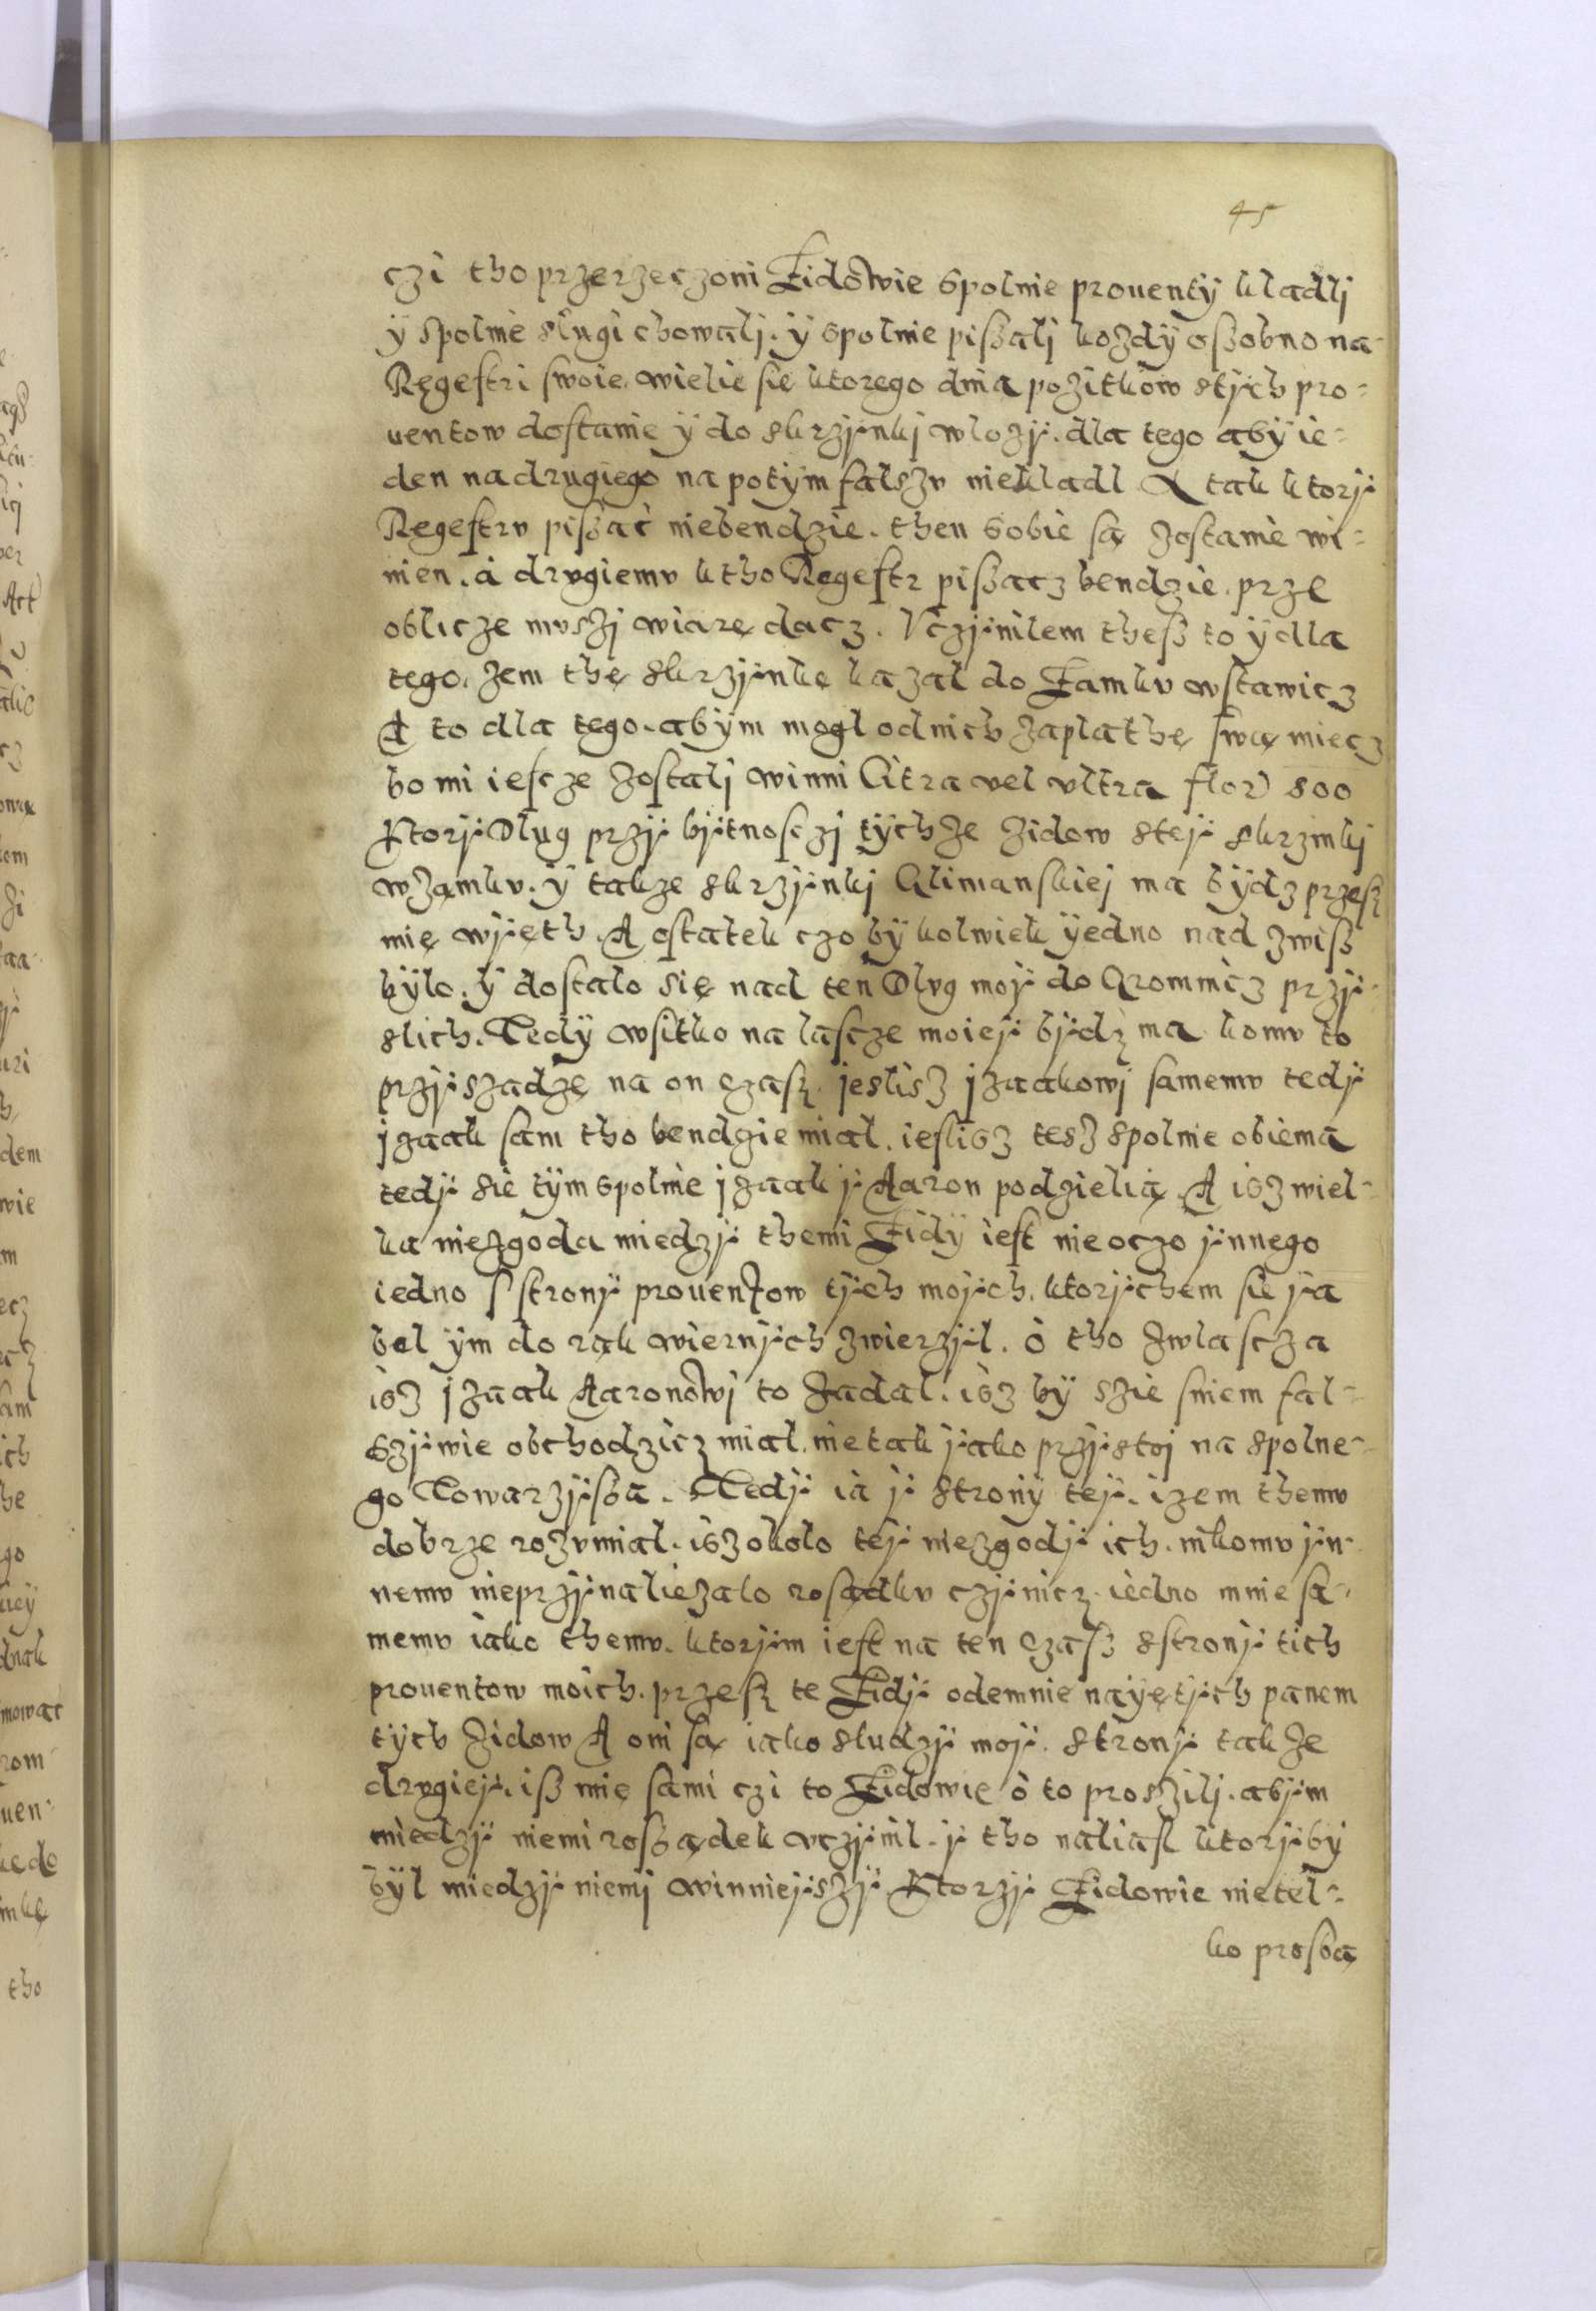 45
czi tho przerzeczoni Zidowie spolnie prouenty kladlj
ÿ spolnie slugi chowalj. ÿ spolnie pißalj kozdÿ oßobno na
Regestri swoie. wielie się ktorego dnia pozitkow stÿch pro=
uentow dostanie ÿ do skrzÿnkj wlozÿ. dla tego abÿ ie=
den nadrugiego na potÿm falszu niekladl A tak ktorÿ
Regestrv pißać niebendzie. then sobie są zostanie wi=
nien. a drvgiemv ktho Regestr pißacz bendzie. prze
oblicze mvszj wiarę dacz. Vczÿnilem theß to ÿ dla
tego. zem thę skrzÿnkę kazal do Zamkv wstawicz
A to dla tego. abÿm mogl odnich zaplathę swą miecz
bo mi iescze zostalj winni Citra vel vltra flor 800
KtorÿDlug przÿ bÿtnosczj tÿchze zidow stejÿ skrzinkj
wzamkv. ÿ takze skrzÿnkj Glimanskiej ma bÿdz przesz
mię wÿęth. A ostatek czo bÿ kolwiek ÿedno nad zwiß
bÿlo. ÿ dostalo się nad ten Dlvg mojÿ do Gromnicz przÿ=
slich. Tedÿ wsitko na lascze moiejÿ bÿdz ma komv to
przÿszadzę na on czasz. jeslisz jzaakowj samemv tedÿ
jzaak sam tho bendzie mial. ieslisz tesz spolnie obiema
tedÿ sie tÿm spolnie jzaak ÿ Aaron podzielią. A isz wiel=
ka niezgoda miedzÿ themi Zidÿ iest nieoczo ÿnnego
iedno s stronÿ prouentow tÿch mojÿch. ktorÿchem się ÿa
bel ÿm do rąk wiernÿch zwierzÿl. ò tho zwlascza
isz jzaak Aaronowj to zadal. isz bÿ szie sniem fal=
szÿwie obchodzicz mial. nietak ÿako przÿstoj na spolne=
go Towarzÿßa. Tedÿ ia ÿ stronÿ tejÿ. izem themv
dobrze rozvmial. isz okolo tejÿ niezgodÿ ich. nikomv ÿn=
nemv nieprzÿnaliezalo rosądkv czÿnicz iedno mnie sa=
memv iako themv. ktorÿm iest na ten czasz sstronÿ tich
prouentow moich. przesz te Zidÿ odemnie nayętÿch panem
tÿch zidow A oni są iako sludzÿ mojÿ. stronÿ takze
drvgiejÿ. iß mię sami czi to Zidowie ò to proszilj. abÿm
miedzÿ niemi roßądek vczÿnil. ÿ tho naliasl ktorÿbj
bÿl miedzÿ niemj winniejÿszÿ Ktorzÿ Zidowie nietel=
ko prosbą